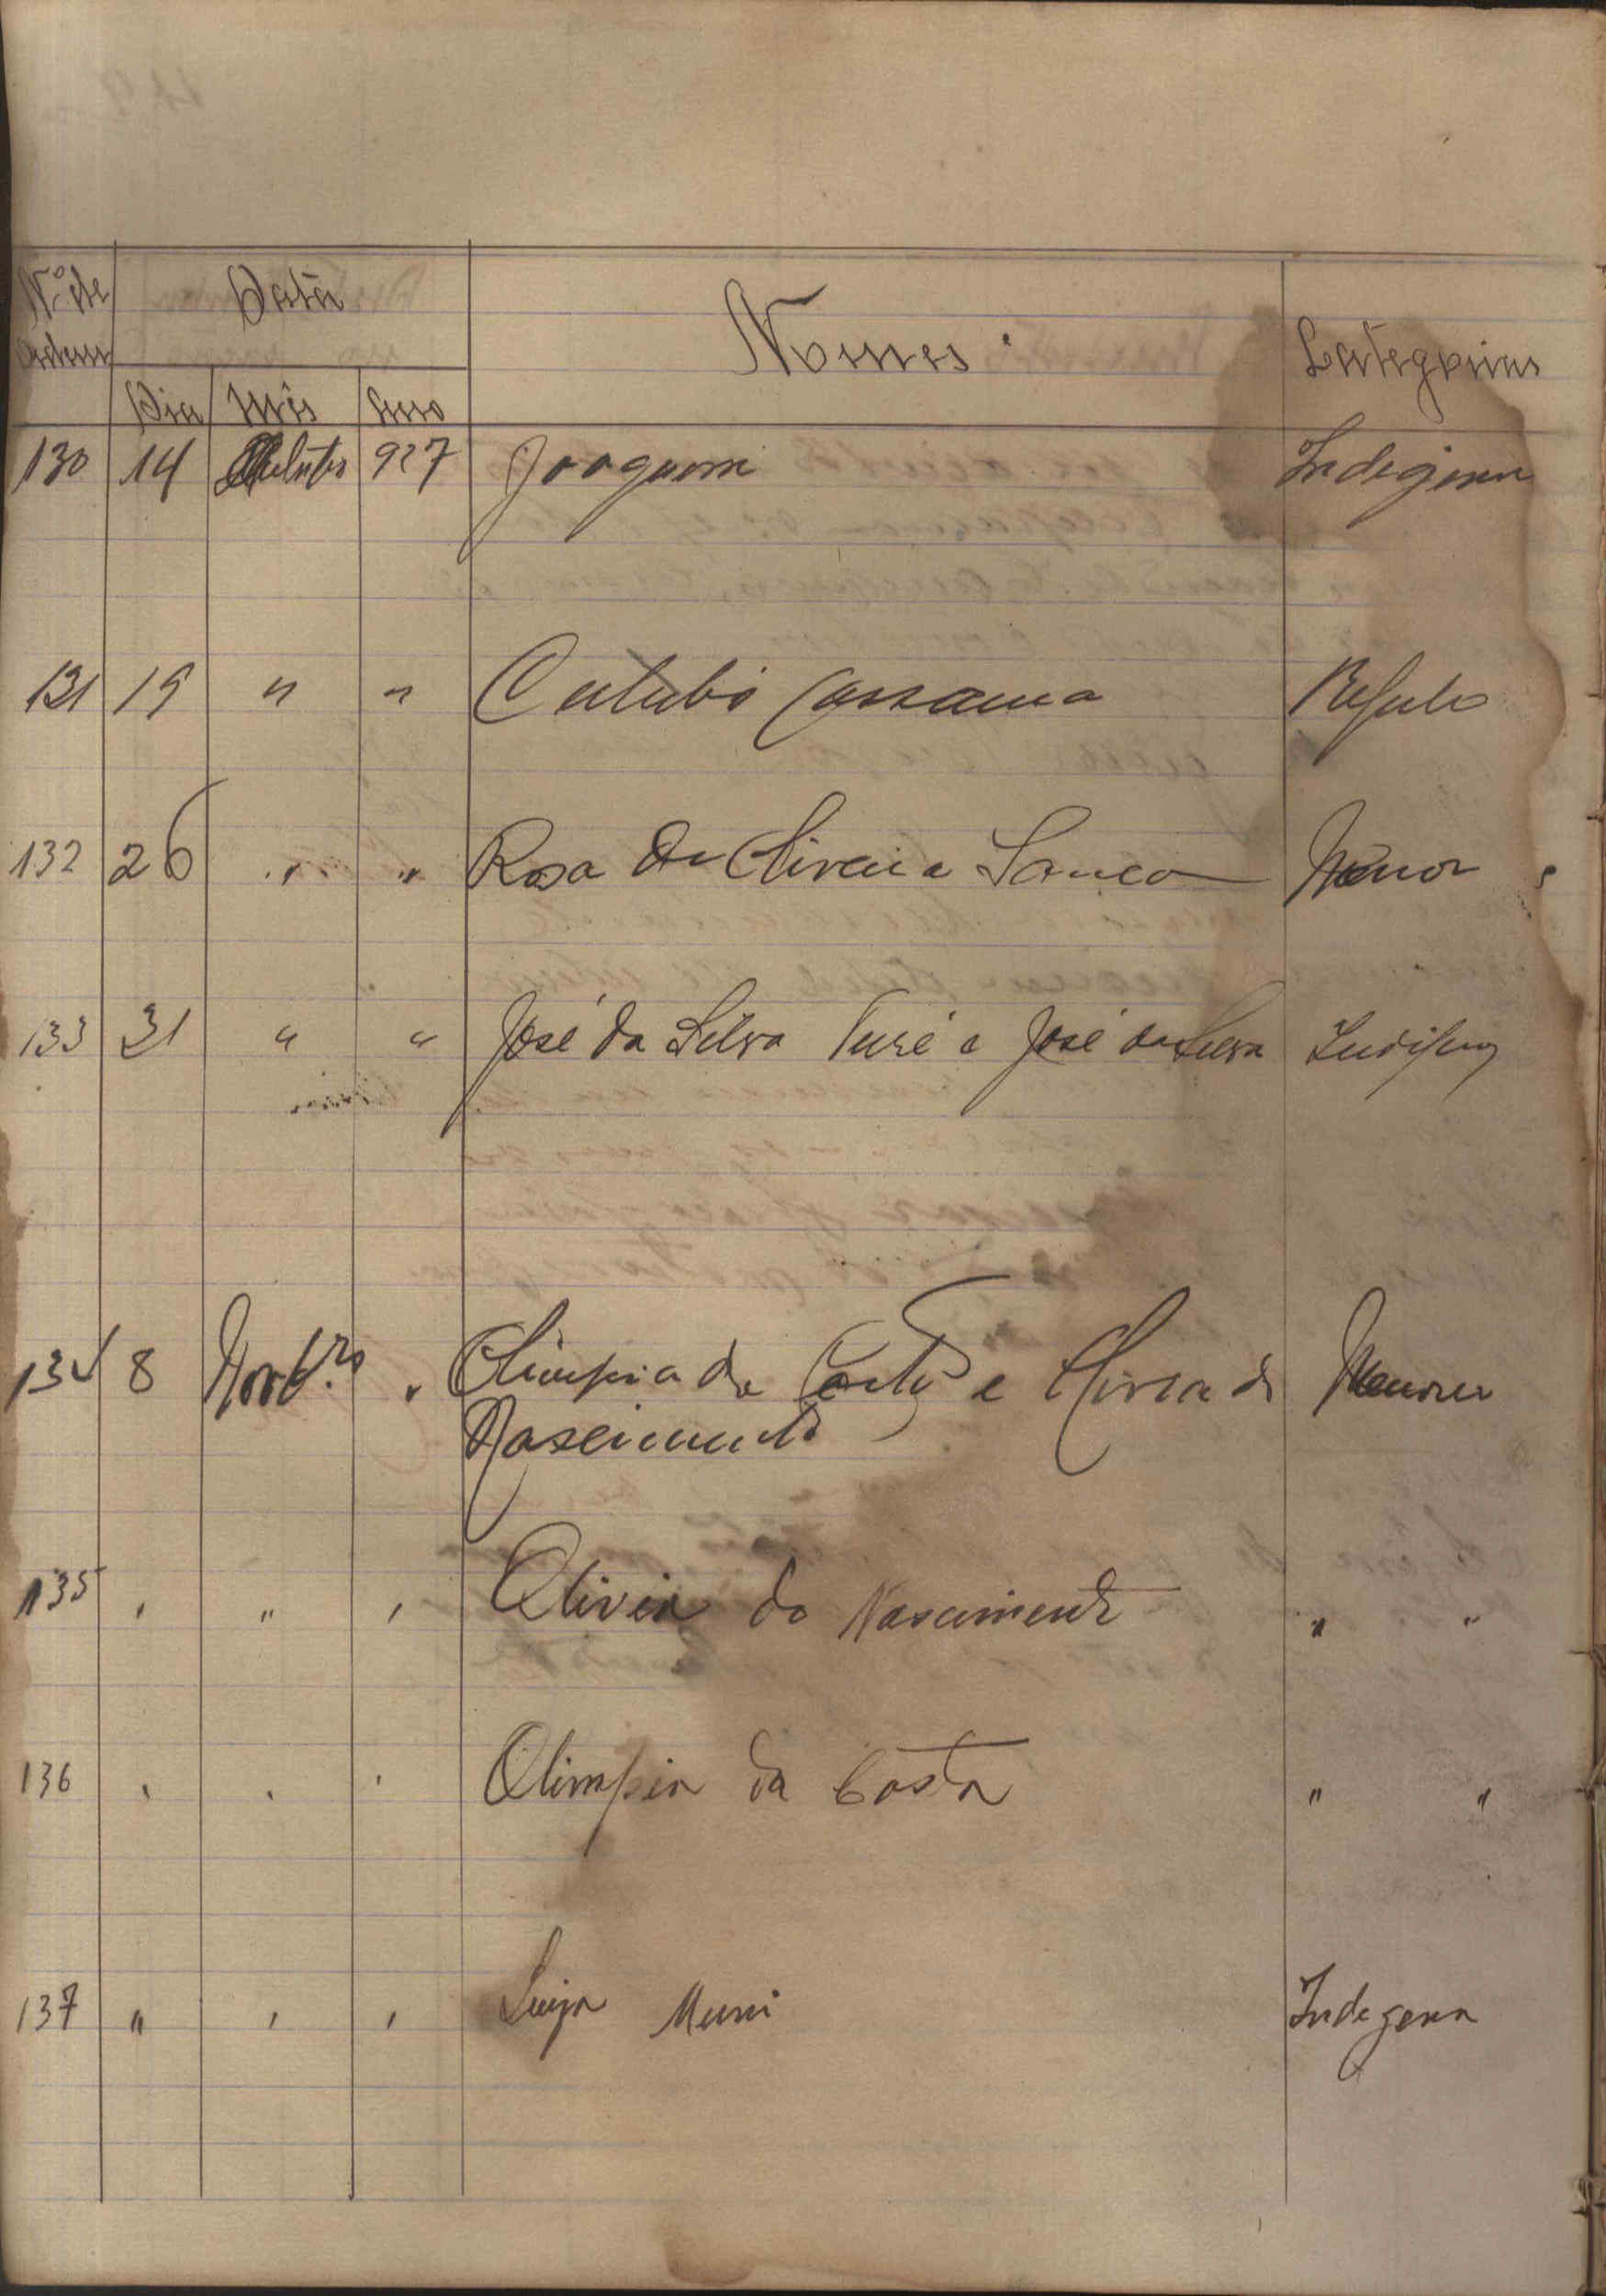 Nº de Data Nomes Categorias
Ordem
Dia Mês Ano
130 14 Outubro 927 Joaquim Indegena
131 19 " " Cutubó Cassama Regulo
132 26 " " Rosa de Oliveira Sanca Menor
133 31 " " José da Silva Turé e José da Silva Indigena
134 8 Novbro " Olimpia da Costa e Olivia do Menores
Nascimento
135 " " " Olivia do Nascimento " "
136 " " " Olimpia da Costa " "
137 " " " Luiza Indegena